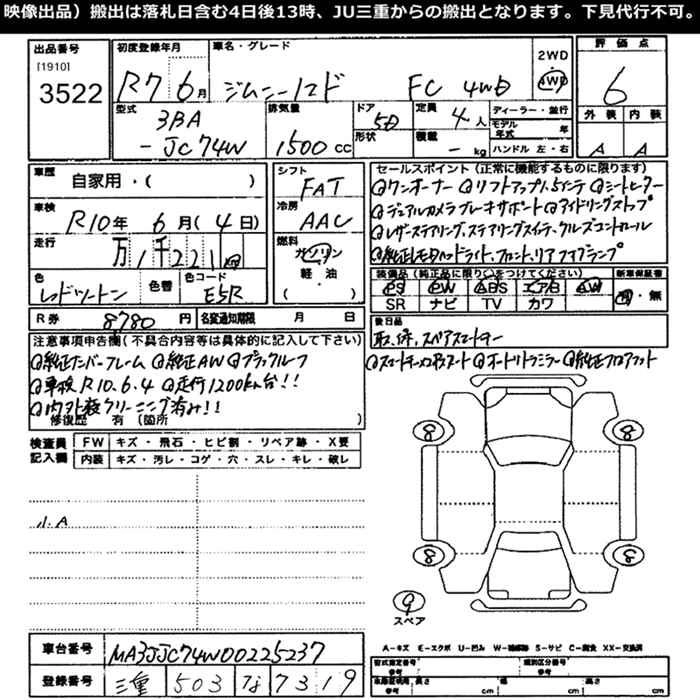 映像出品）搬出は落札日含む4日後13時、JU三重からの搬出となります。下見代行不可。
出品番号 [1910] 3522
初度登録年月 R7 6月
車名・グレード ジムニーノマド FC 4WD
2WD 4WD
評価点 6
外装 A 内装 A
型式 3BA-JC74W
排気量 1500 cc
ドア 5D
形状
定員 4人
積載 - kg
ディーラー・並行
モデル年式 年
ハンドル 左・右
車歴 自家用・( )
車検 R10年 6月(4日)
走行 万1千221
色 レッドツートン
色替
色コード E5R
シフト FAT
冷房 AAC
燃料 ガソリン 軽・油 ( )
セールスポイント（正常に機能するものに限ります）
◎ワンオーナー ◎リフトアップ1.5インチ ◎シートヒーター
◎デュアルカメラブレーキサポート ◎アイドリングストップ
◎レザーステアリング、ステアリングスイッチ、クルーズコントロール
◎純正LEDヘッドライト、フロント、リアフォグランプ
装備品（純正品に限り○をつけてください）
PS PW ABS エアB AW
SR ナビ TV カワ
新車保証書 有・無
R券 8780円
名変通知期限 月 日
後日品
取、保、スペアスマートキー
注意事項申告欄（不具合内容等は具体的に記入して下さい）
◎純正ナンバーフレーム ◎純正AW ◎ブラックルーフ
◎車検R10.6.4 ◎走行1200km台!!
◎内外装クリーニング済み!!
修復歴 有（箇所
◎オートリトラミラー ◎純正フロアマット
検査員記入欄
FW キズ・飛石・ヒビ割・リペア跡・X要
内装 キズ・汚レ・コゲ・穴・スレ・キレ・破レ
小A
8 8
8 8
9 スペア
車台番号 MA3JJC74W00225237
登録番号 三重 503 7319
A－キズ E－エクボ U－凹み W－補修跡 S－サビ C－腐食 XX－交換済
型式指定番号 参考
類別区分番号 参考
長さ cm 幅 cm 高さ cm